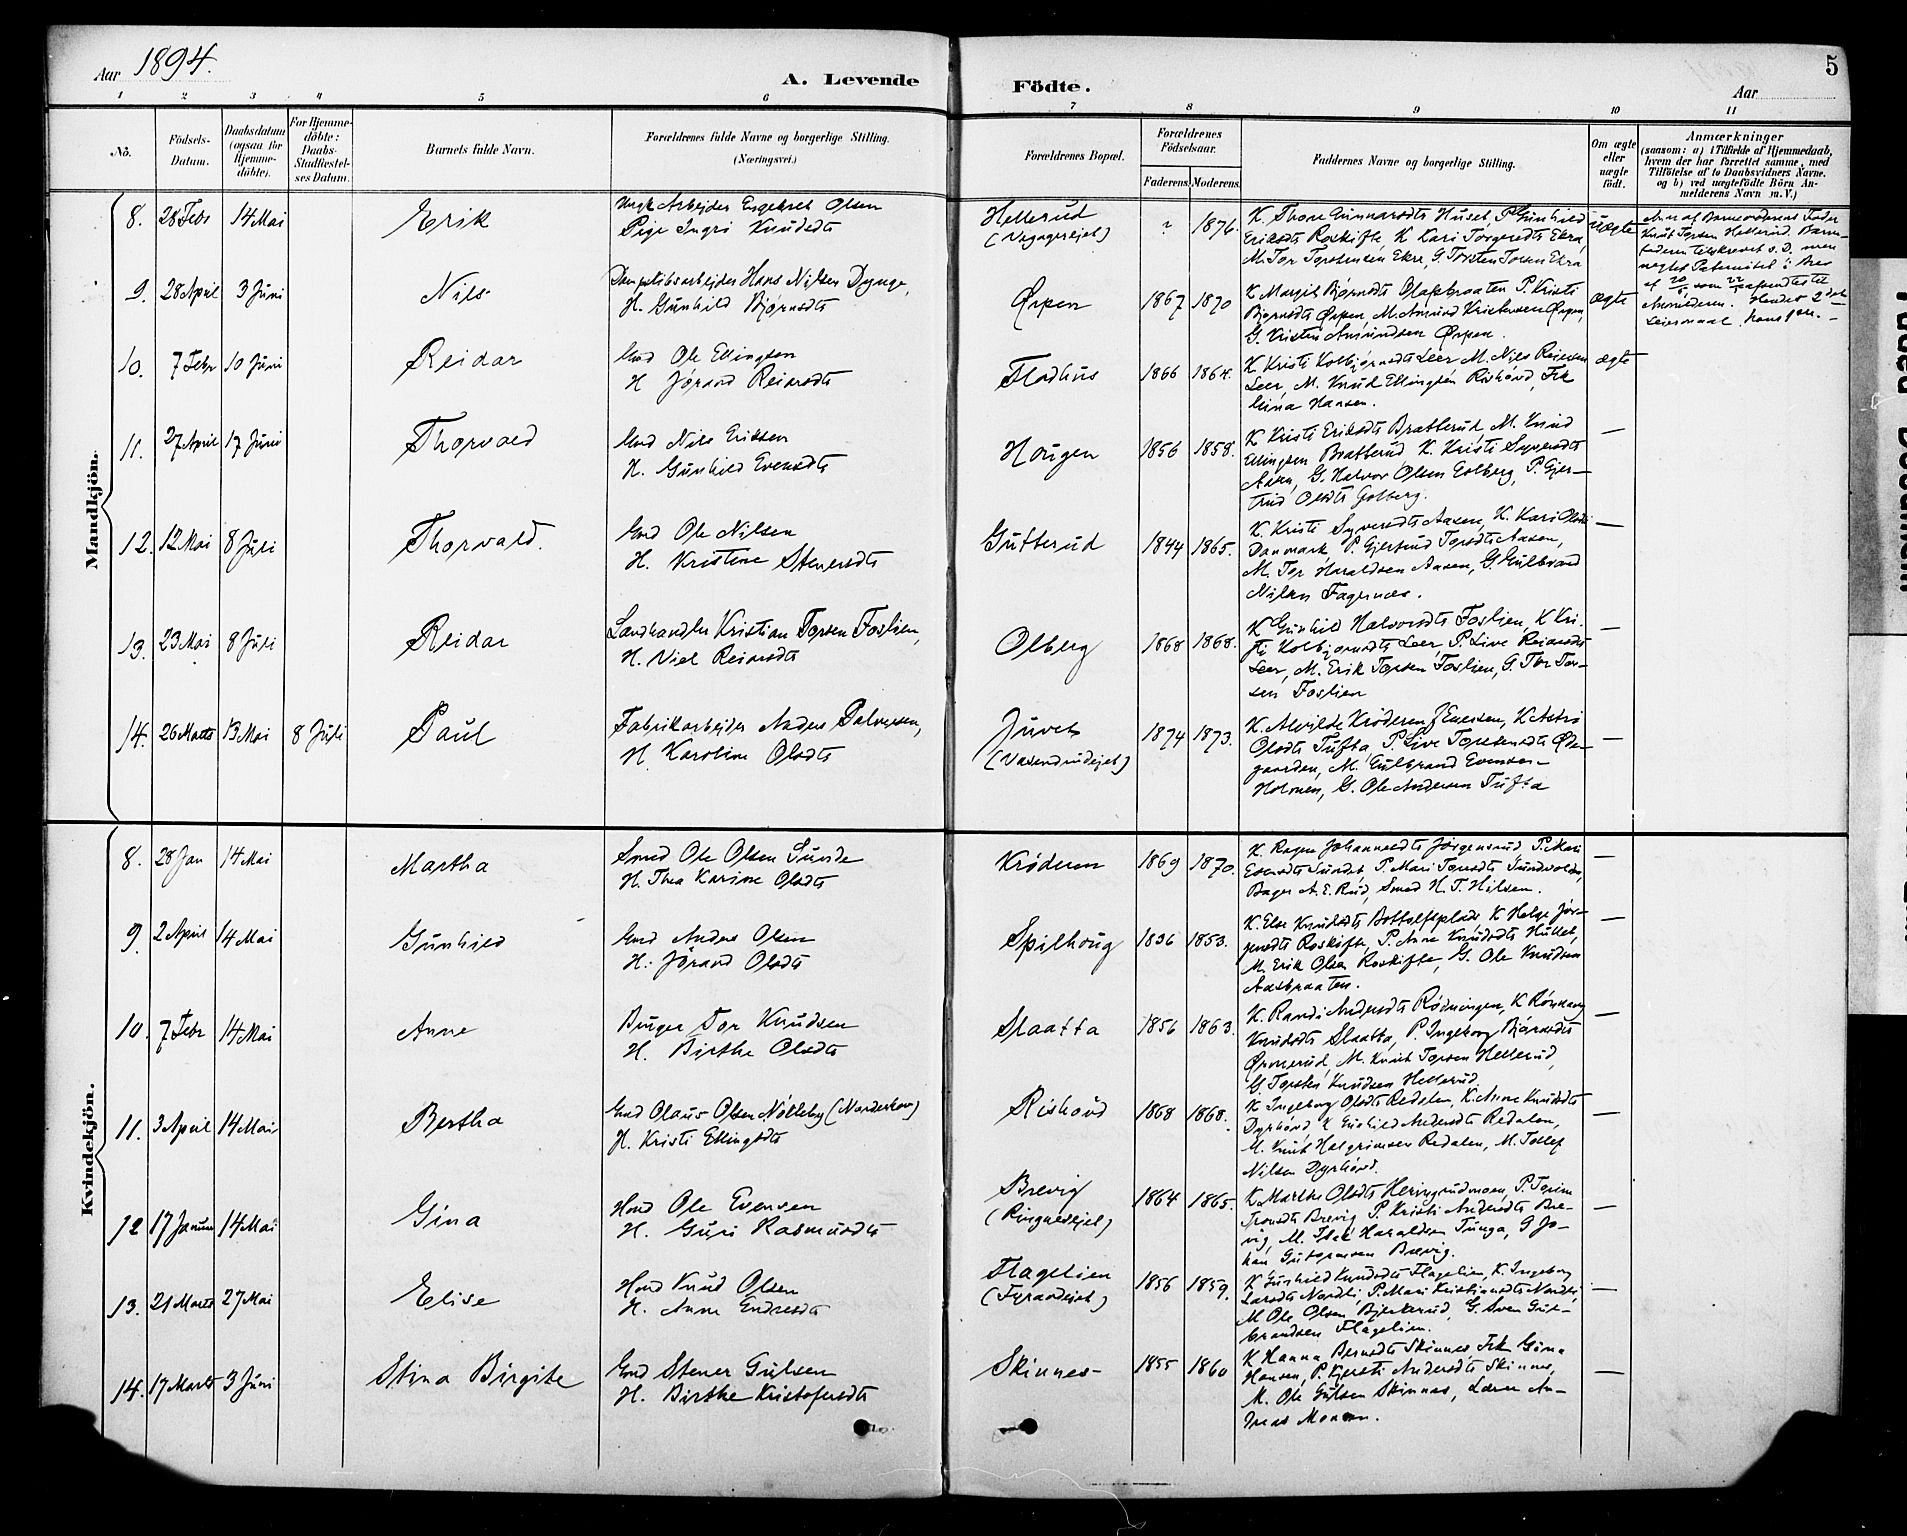 Aar 1894.
A. Levende
Födte.
Aar
5
1 2 3 4 5 6 7 8 9 10 11
No.
Födsels-
Datum.
Daabsdatum
(ogsaa for
Hjemme-
döbte).
For Hjemme-
döbte:
Daabs-
Stadfæstel-
ses Datum.
Barnets fulde Navn.
Forældrenes fulde Navne og borgerlige Stilling.
(Næringsvei.)
Forældrenes Bopæl.
Forældrenes
Födselsaar.
Faderens. Moderens.
Faddernes Navne og borgerlige Stilling.
Om ægte
eller
uægte
födt.
Anmærkninger
(saasom: a) i Tilfælde af Hjemmedaab,
hvem der har forrettet samme, med
Tilföielse af to Daabsvidners Navne.
og b) ved uægtefödte Börn An-
melderens Navn m. V.)
Mandkjön.
8. 28 Febr 14 Mai
Erik
Ungk Arbejder Engebret Olsen
Pige Ingri Knudsdts
Hellerud
? 1876.
K. Thone Gunnarsdts Huset, P. Gunhild
Eriksdts Roskifte, K Kari Torgersdts Ekra,
M. Tor Torstensen Ekre, G. Torsten Torsen Ekra
Uægte
Anm af Barnemoderens Fader
Knut Torsen Hellerud.
9. 28 April 3 Juni
Nils
Hans Nilsen Dynge,
H. Gunhild Bjørnsdts
Ørpen
1867 1870
K Margit Bjørnsdts Olasbraaten P. Kristi
Bjørnsdts Ørpen, M. Amund Kristensen Ørpen,
G. Kristen Amundsen Ørpen.
ægte
10. 7 Febr 10 Juni
Reidar
Gmd Ole Ellingsen
H Jørand Reiarsdts
Flodhus
1866 1864.
K Kristi Kolbjørnsdts Leer M. Nils Reiersen
Leer, M. Knud Ellingsen Rishovd, Frk
Gina Hansen.
ægte
11. 27 April 17 Juni
Thorvald
Gmd Nils Eriksen
H. Gunhild Evensdts
Hougen
1856 1858.
K Kristi Eriksdts Bratterud, M. Knud
Ellingsen Bratterud K. Kristi Syversdts
Aasen, G. Halvor Olsen Golberg, P. Gjer-
trud Olsdts Golberg.
—
12. 12 Mai 8 Juli
Thorvald.
Gmd Ole Nilsen
H. Kristine Stenersdts
Gutterud
1844 1865.
K. Kristi Syversdts Aasen, K. Kari Olsdts
Danmark, P. Gjertrud Torsdts Aasen,
M. Tor Haraldsen Aasen, G. Gulbrand
Nilsen Fagernæs.
—
13. 23 Mai 8 Juli
Reidar
Landhandler Kristian Torsen Foslien,
H. Viel Reiarsdts
Olberg
1868 1868.
K Gunhild Halvorsdts Foslien, K Kri-
sti Kolbjørnsdts Leer, P. Live Reiarsdts
Leer, M. Erik Torsen Foslien, G. Tor Tor-
sen Foslien
—
14. 26 Marts 13 Mai 8 Juli
Paul
Fabrikarbejder Anders Palvesen,
H. Karoline Olsdts
Juvet
1874 1873.
K. Alvilde Krøderen, K Astri
Olsdts Tufta, P. Live Torstensdts Øde-
gaarden, M. Gulbrand Evensen
Holmen, G. Ole Andersen Tufta
—
Kvindekjön.
8. 28 Jan 14 Mai
Martha
Smed Ole Olsen Sunde
H. Thea Karine Olsdts
Krøderen
1869 1870.
K. Ragne Johannesdts Jørgensrud P. Mari
Evensdts Sundet, P. Mari Torsdts Sundvolden,
Bager A. E. Rud, Smed H. T. Hilsen.
—
9. 2 April 14 Mai
Gunhild
Gmd Anders Olsen
H. Jørand Olsdts
Spilhoug
1836 1853.
K. Else Knudsdts Bottolfsplads K Helge Jør-
gensdts Roskifte, P. Anne Knudsdts Hullet,
M. Erik Olsen Roskifte, G. Ole Knudsen
Aasbraaten.
—
10. 7 Febr 14 Mai
Anne
Bruger Tor Knudsen
H. Birthe Olsdts
Slaatta
1856 1863.
K. Randi Andersdts Rødningen, K Rønnaug
Knudsdts Slaatta, P. Ingeborg Bjørnsdts
Ørnerud, M. Knut Torsen Hellerud,
G. Torsten Knudsen Hellerud.
—
11. 3 April 14 Mai
Bertha
Gmd Olaus Olsen Nølleby (Norderhov)
H. Kristi Ellingsdts
Rishovd
1868 1868.
K Ingeborg Olsdts Redalen, K. Anne Knudsdts
Dyrhovd K Gunhild Andersdts Redalen,
M. Knut Halgrimsen Redalen, M. Tollef
Nilsen Dyrhovd.
—
12 17 Januar 14 Mai
Gina
Hmd Ole Evensen
H. Guri Rasmusdts
Brevig
(Ringneseiet)
1864 1865.
K Marthe Olsdts Heringrudmoen, P. Torine
Tronsdts Brevig P. Kristi Andersdts Bre-
vig, M. Isak Haraldsen Tunga, G Jo-
han Gustavsen Brevig.
—
13. 21 Marts 27 Mai
Elise
Hmd Knud Olsen
H. Anne Endresdts
Flagelien
1856 1859.
K Gunhild Knudsdts Flagelien, K. Ingeborg
Larsdts Nordli, P. Mari Kristiansdts Nordli,
M Ole Olsen Bjerkerud, G. Sven Gul-
brandsen Flagelien.
—
14. 17 Marts 3 Juni
Stina Birgite
Gmd Stener Gulsen
H. Birthe Kristofersdts
Skinnes
1855 1860
K Hanna Berntsdts Skinnes Frk Gina
Hansen, P. Kjersti Andersdts Skinnes,
M. Ole Gulsen Skinnes, Lærer An-
dreas Moen.
—